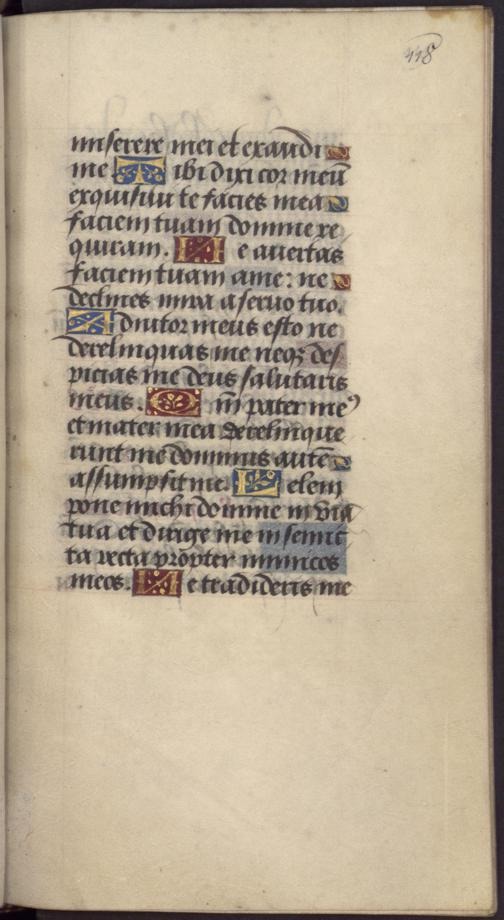 118
miserere mei et exaudi
me T ibi dixi cor meū
exquisiuit te facies mea
faciem tuam domine re
quiram. N e auertas
faciem tuam a me: ne
declines in ira a seruo tuo.
A diutor meus esto ne
derelinquas me neqꝫ des
picias me deus salutaris
meus. Q m̄ pater meꝰ
et mater mea derelinque
runt me dominus autē
assumpsit me. L e lem
pone michi domine in via
tua et dirige me in semit
ta recta propter inimicos
meos. N e tradideris me